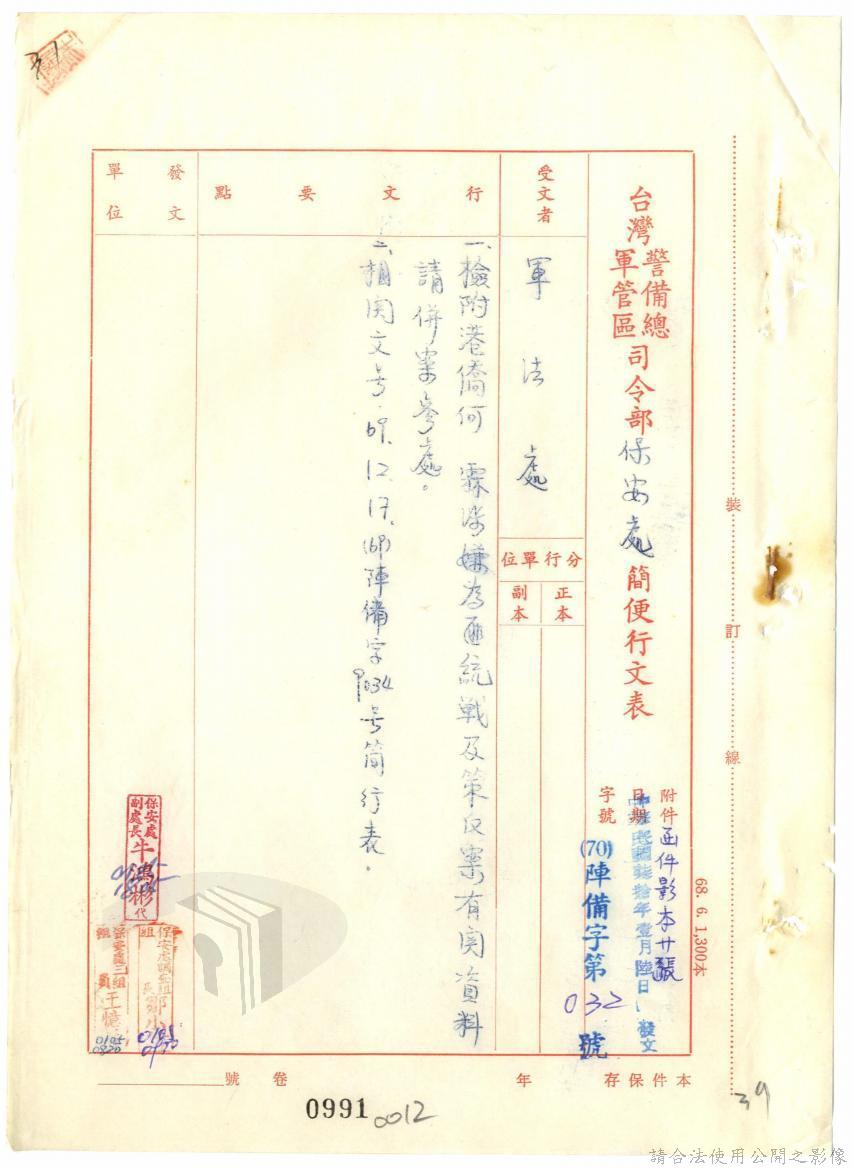 台灣警備總軍管區司令部保安處簡便行文表
附件 函件影本廿張
日期 中華民國柒拾年壹月陸日發文
字號 (70)陣備字第032號
受文者
軍法處
分行單位
正本
副本
行文要點
一、檢附港僑何 霖涉嫌為匪統戰及策反案有関資料
請併案參處。
二、相関文号:69.12.17.(69)陣備字9034号简行表。
發文單位
保安處副處長牛鴻彬代
保安處三組組員王憶
本件保存 年 卷 號
68. 6. 1,300本
裝訂線
31
39
0991
0012
請合法使用公開之影像